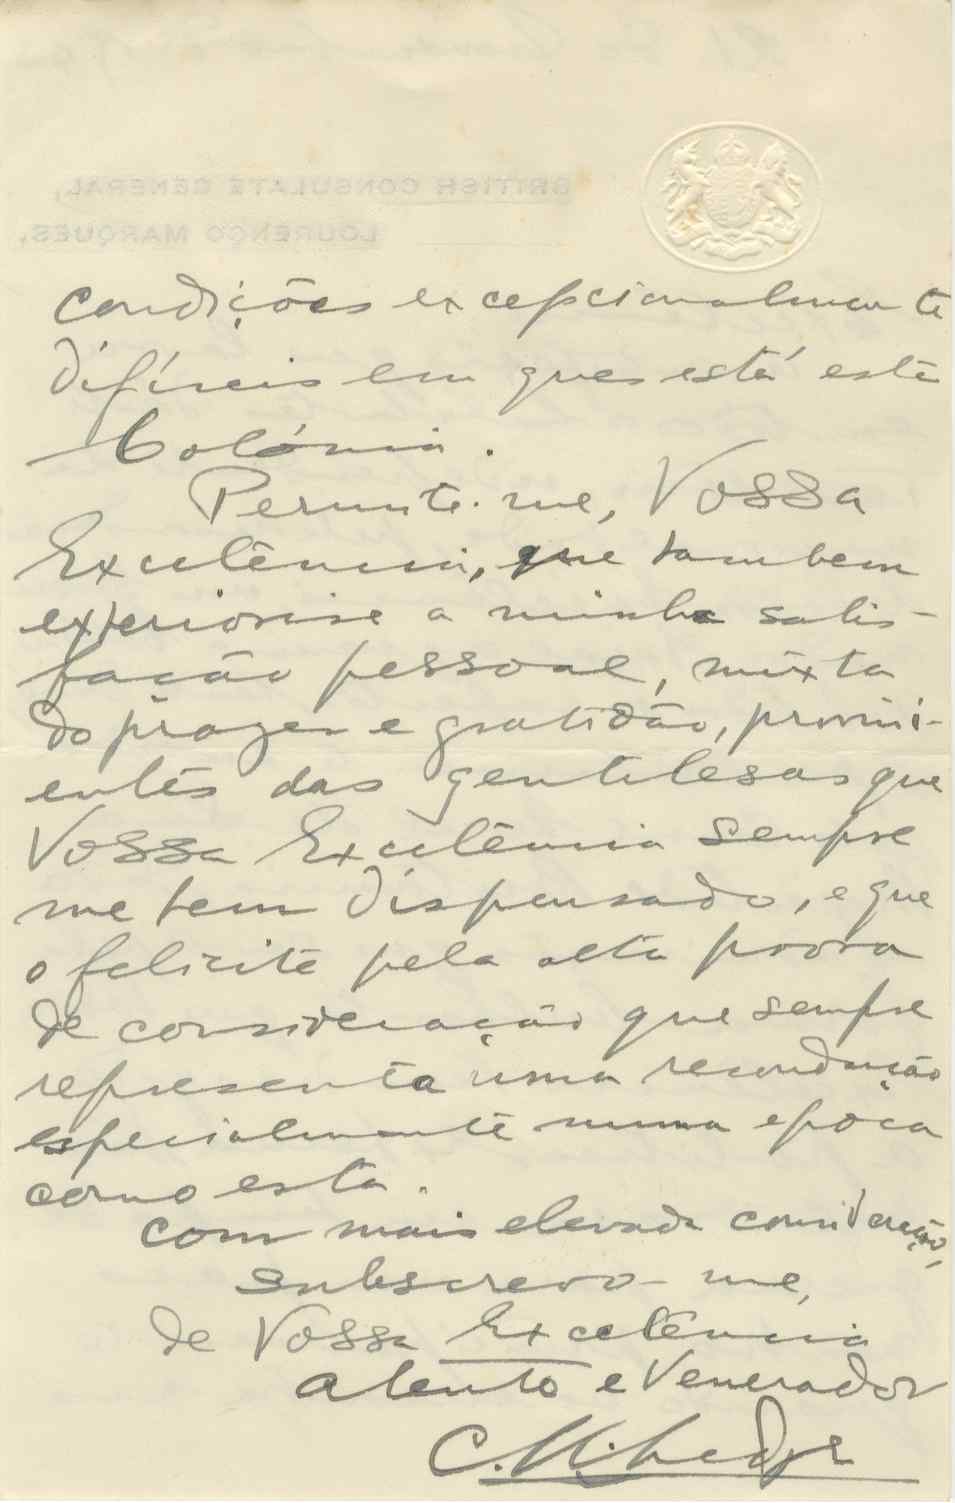 BRITISH CONSULATE GENERAL,
LOURENÇO MARQUES.
condições excepcionalmente
difíceis em que está esta
Colónia.
Permite-me, Vossa
Excelência, que tambem
exteriorise a minha satis-
fação pessoal, mixta
do prazer e gratidão, provini-
entes das gentilesas que
Vossa Excelência sempre
me tem dispensado, e que
o felicite pela alta prova
de consideração que sempre
representa uma recondução
especialmente numa epoca
como esta.
Com mais elevada consideração,
subscrevo-me,
de Vossa Excelência
atento e Venerador